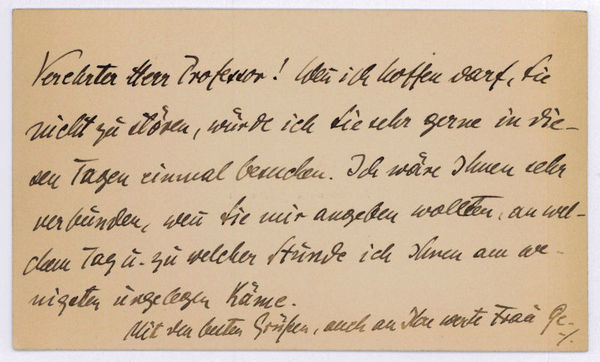 Verehrter Herr Professor! Wen̄ ich hoffen darf, Sie
nicht zu stören, würde ich Sie sehr gerne in die-
sen Tagen einmal besuchen. Ich wäre Ihnen sehr
verbunden, wen̄ Sie mir angeben wollten, an wel-
chem Tag u. zu welcher Stunde ich Ihnen am we-
nigsten ungelegen käme.
Mit den besten Grüßen, auch an Ihre werte Frau Ge-
./.